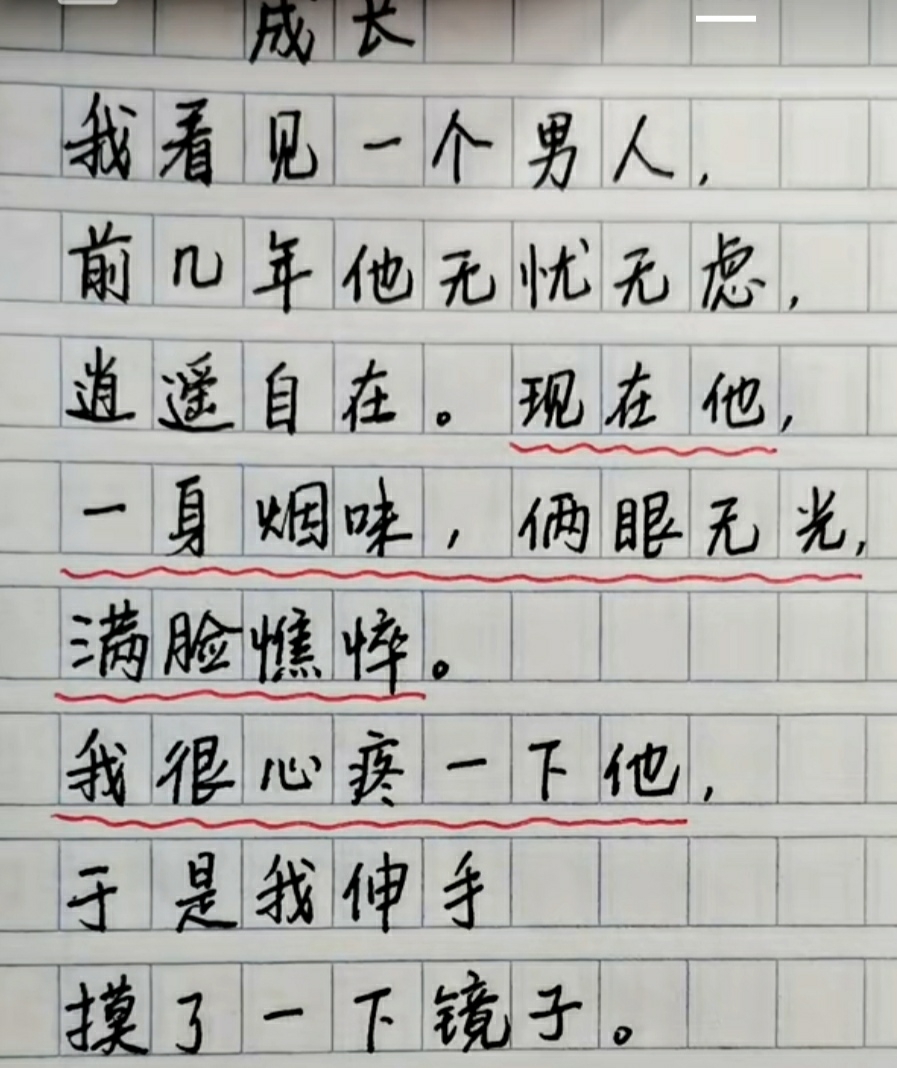 成长
我看见一个男人，
前几年他无忧无虑，
逍遥自在。现在他，
一身烟味，俩眼无光，
满脸憔悴。
我很心疼一下他，
于是我伸手
摸了一下镜子。